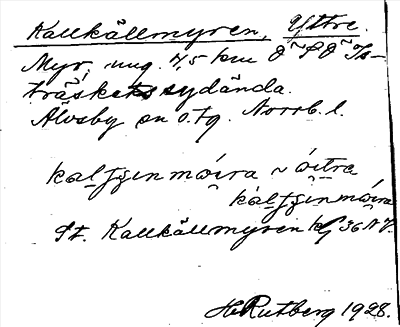 Kallkällmyren, Yttre.
Myr, ung. 4,5 km O~SO~Is-
träskets sydända.
Älvsby sn o. tg. Norrb. l.
kalʃʃinmóira ~ óitra
kalʃʃinmóira
St. Kallkällmyren kg 36 NV.
H Rutberg 1928.